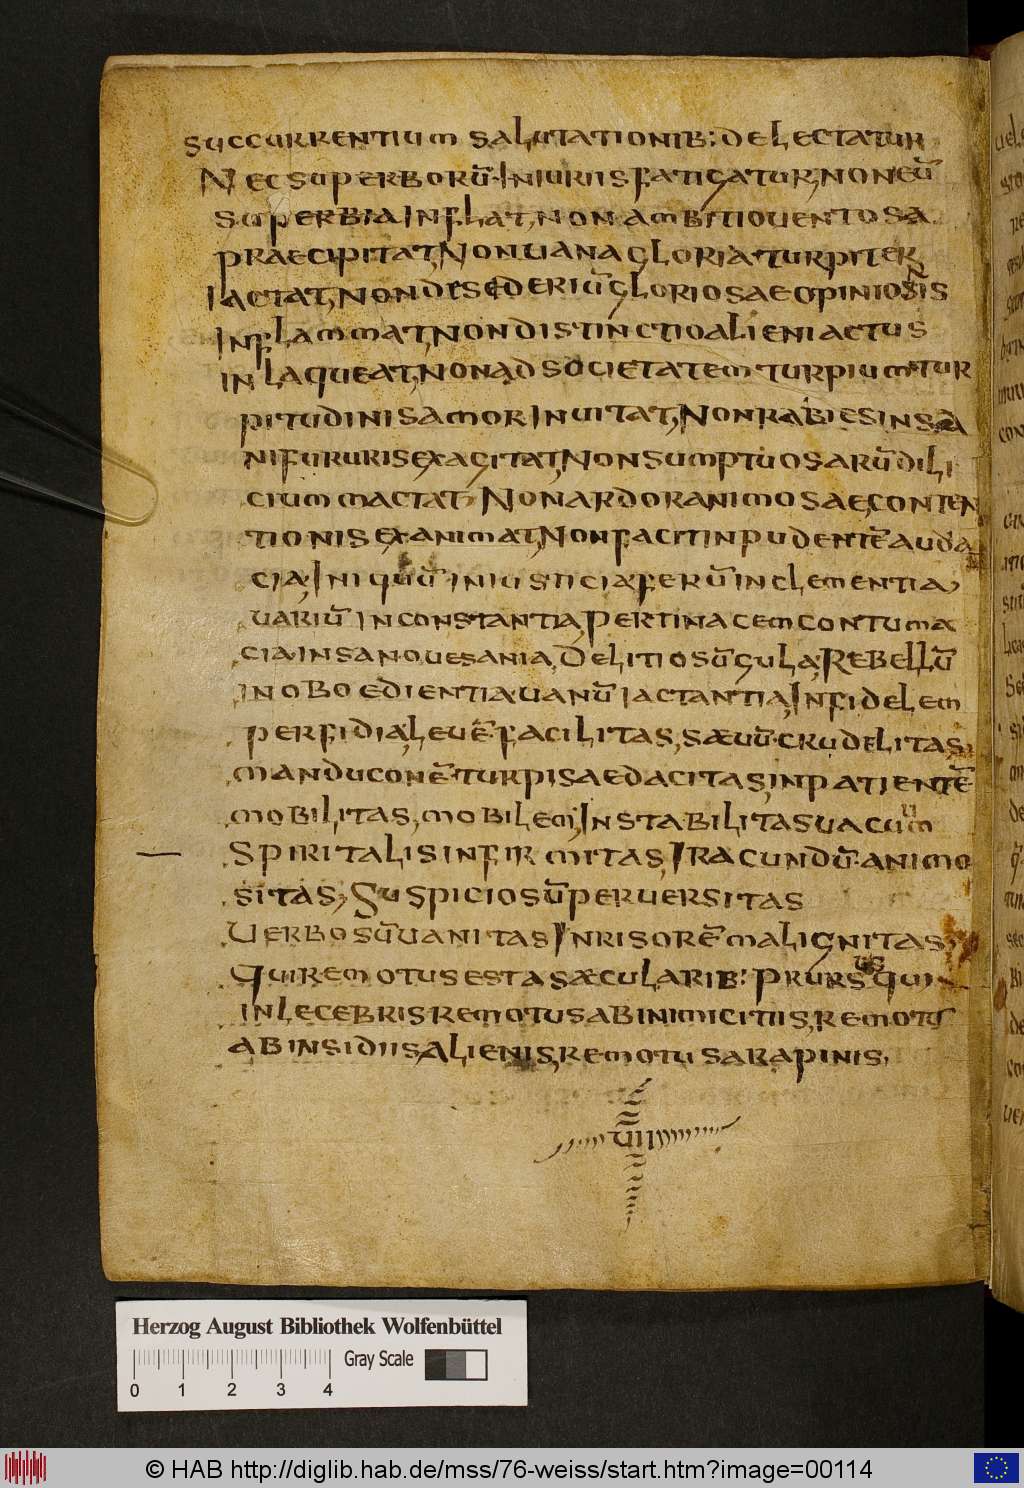 succurrentium salutationib: delectatur
Nec superborū iniuriis fatigatur, non eū
superbia inflat, non ambitio uentosa
praecipitat, Non uana gloria turpiter
lactat, non desederiū gloriosae opinionis
Inflammat, Non distinctio alieni actus
inlaqueat, Non ad societatem turpium tur
pitudinis amor Inuitat, Non rabies insa
ni fururis exagitat, Non sumptuosarū dili
cium mactat Non ardor animosae conten
tionis exanimat, Non facit inpudentē auda
cia, Iniquū iniusticia, ferū inclementia,
uariū inconstantia Pertinacem contuma
cia insano uesania, Delitiosū gula, Rebellū
inoboedientia uanū iactantia, Infidelem
perfidia, leuē facilitas, sæuū crudelitas,
manduconē turpis aedacitas, inpatientē
mobilitas, mobilem Instabilitas uacuum
Spiritalis infirmitas, Iracundū animo
sitas, Suspiciosū peruersitas
Uerbosū uanitas Inrisorē malignitas,
Qui remotus est a sæcularib: P rursus qui
inlecebris remotus ab inimicitiis, remotus
ab insidiis Alienis, remotus a rapinis,
uii
Herzog August Bibliothek Wolfenbüttel
Gray Scale
0 1 2 3 4
© HAB http://diglib.hab.de/mss/76-weiss/start.htm?image=00114